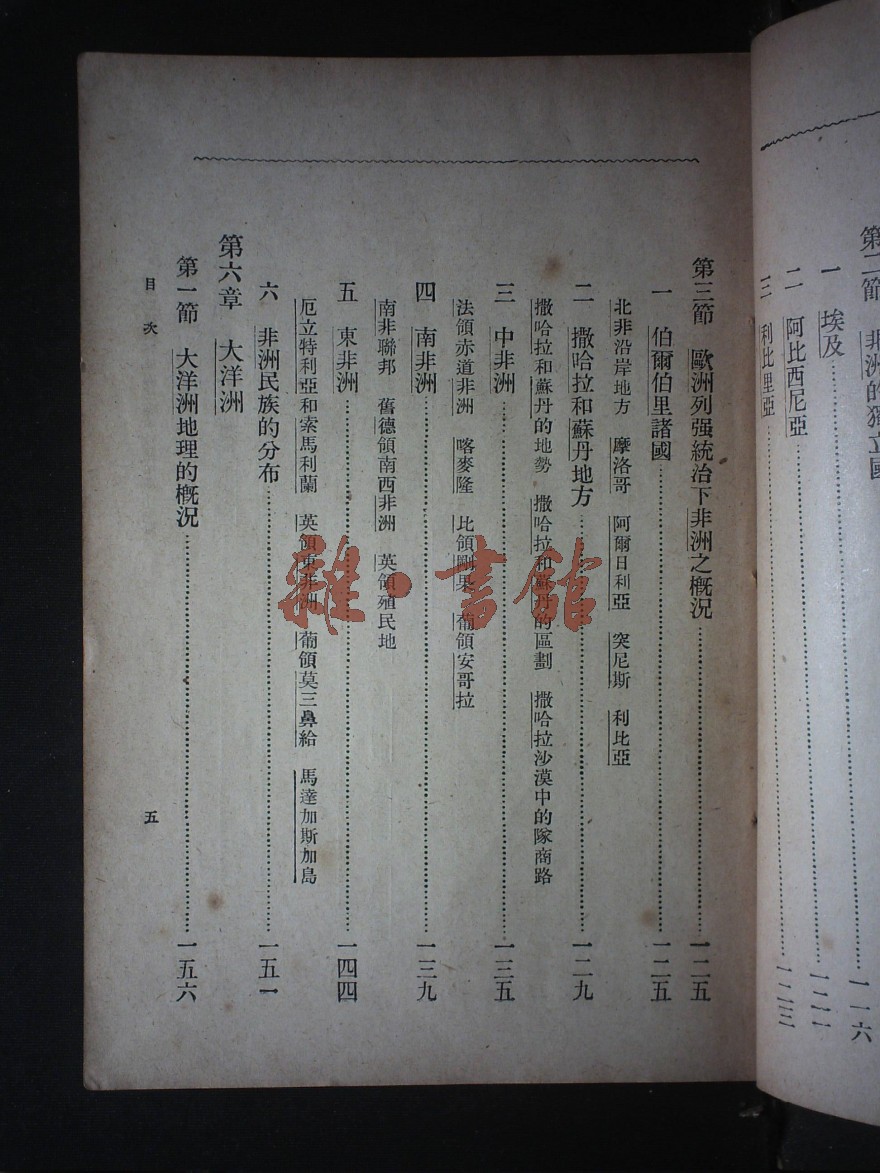 第二節 非洲的獨立國……一一六
一 埃及……一二一
二 阿比西尼亞
三 利比里亞……一二三
第三節 歐洲列强統治下非洲之概況……一二五
一 伯爾伯里諸國……一二五
北非沿岸地方 摩洛哥 阿爾日利亞 突尼斯 利比亞
二 撒哈拉和蘇丹地方……一二九
撒哈拉和蘇丹的地勢 撒哈拉和蘇丹的區劃 撒哈拉沙漠中的隊商路
三 中非洲……一三五
法領赤道非洲 喀麥隆 比領剛果 葡領安哥拉
四 南非洲……一三九
南非聯邦 舊德領南西非洲 英領殖民地
五 東非洲……一四四
厄立特利亞和索馬利蘭 英領東非洲 葡領莫三鼻給 馬達加斯加島
六 非洲民族的分布……一五一
第六章 大洋洲
第一節 大洋洲地理的概況……一五六
目次
五
雜·書館